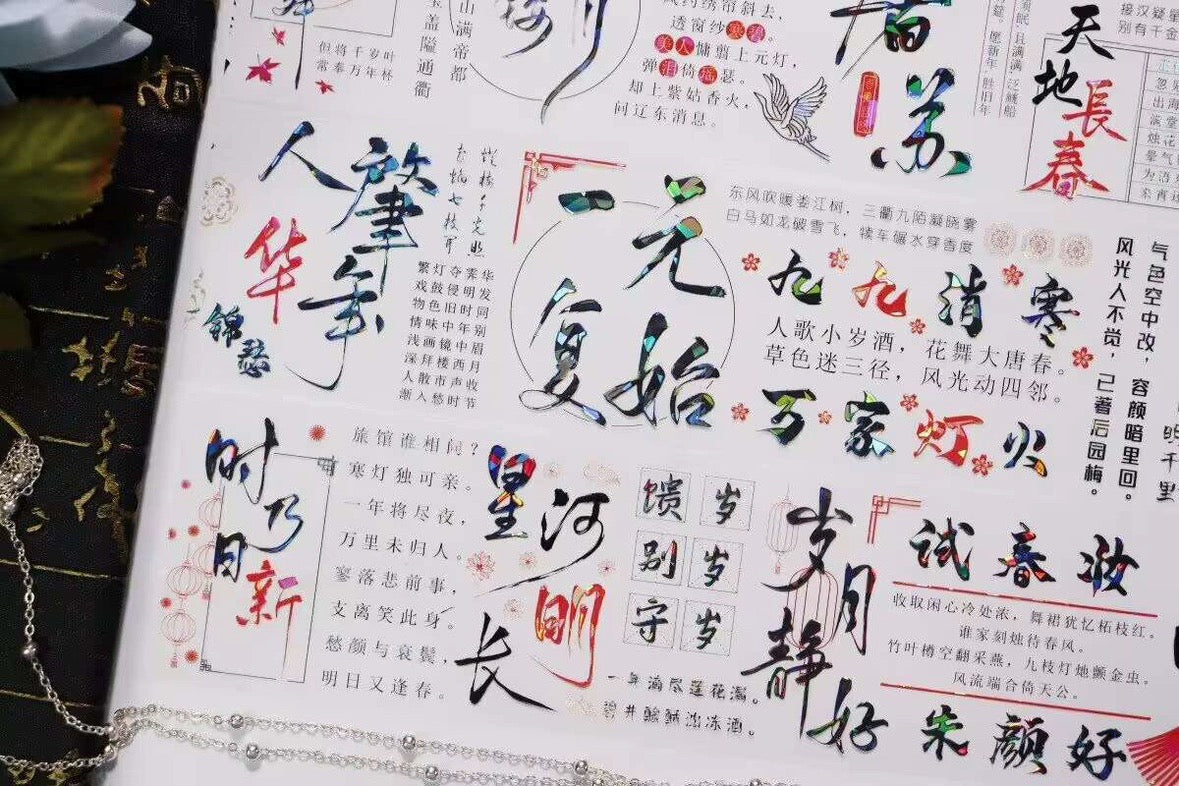 但将千岁叶
常奉万年杯
宝盖隘通衢
山满帝都
风约绣帘斜去，
透窗纱寒碧。
美人慵翦上元灯，
弹泪倚瑶瑟。
却上紫姑香火，
问辽东消息。
苏
愿新年 胜旧年
天地
長春
人肇
华年
锦瑟
繁灯夺霁华
戏鼓侵明发
物色旧时同
情味中年别
浅画镜中眉
深拜楼西月
人散市声收
渐入愁时节
一元
复始
东风吹暖娄江树，三衢九陌凝晓雾
白马如龙破雪飞，犊车碾水穿香度
九九消寒
人歌小岁酒，花舞大唐春。
草色迷三径，风光动四邻。
万家灯火
气色空中改，容颜暗里回。
风光人不觉，已著后园梅。
时乃日新
旅馆谁相问？
寒灯独可亲。
一年将尽夜，
万里未归人。
寥落悲前事，
支离笑此身。
愁颜与衰鬓，
明日又逢春。
星河
长明
馈岁
别岁
守岁
一年滴尽莲花漏。
碧井酴酥沈冻酒。
岁月
静好
试春妆
收取闲心冷处浓，舞裙犹忆柘枝红。
谁家刻烛待春风。
竹叶樽空翻采燕，九枝灯灺颤金虫。
风流端合倚天公。
朱颜好